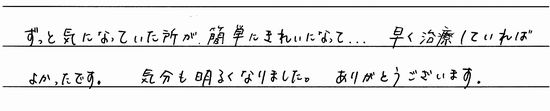 ずっと気になっていた所が、簡単にきれいになって... 早く治療していれば
よかったです。 気分も明るくなりました。 ありがとうございます。